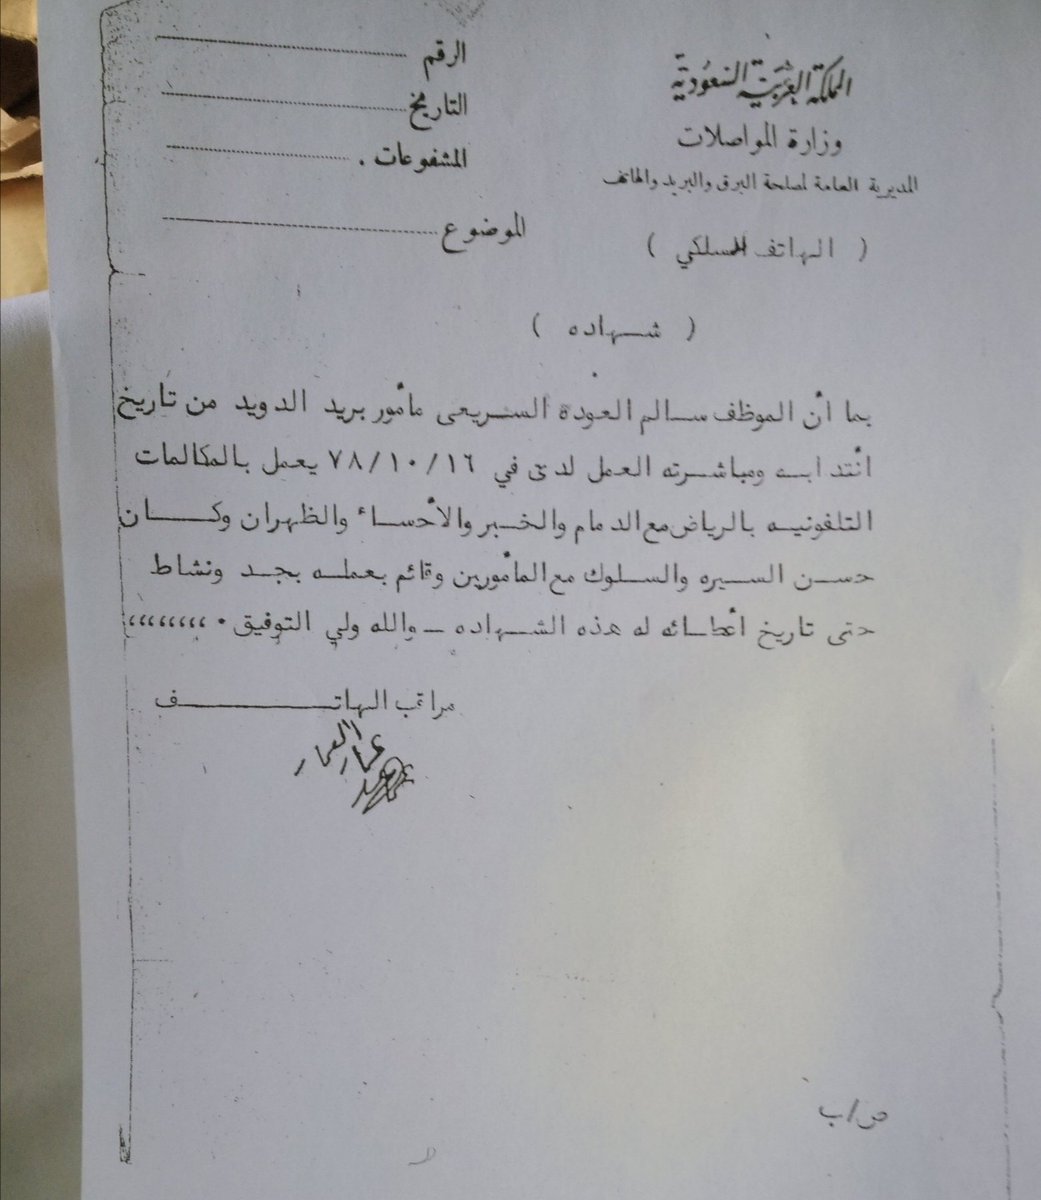 المملكة العربية السعودية
وزارة المواصلات
المديرية العامة لمصلحة البرق والبريد والهاتف
( الهاتف اللاسلكي )
الرقم
التاريخ
المشفوعات .
الموضوع
( شهاده )
بما أن الموظف سالم العودة السريعى مأمور بريد الدويد من تاريخ
انتدابه ومباشرته العمل لدى في ٧٨/١٠/١٦ يعمل بالمكالمات
التلفونيه بالرياض مع الدمام والخبر والأحساء والظهران وكان
حسن السيره والسلوك مع المأمورين وقائم بعمله بجد ونشاط
حتى تاريخ أعطائه له هذه الشهاده ــ والله ولي التوفيق .،،،،،،،،
مراقب الهاتف
ص/ب